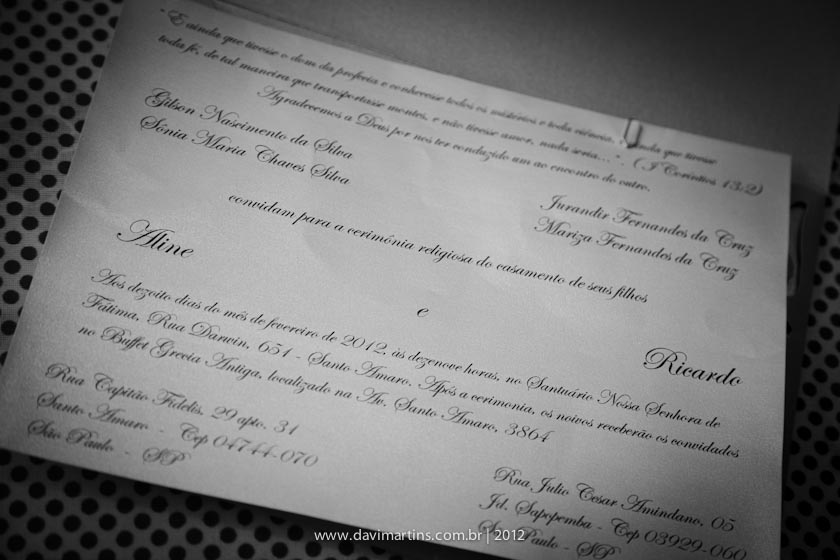 "E ainda que tivesse o dom da profecia e conhecesse todos os mistérios e toda ciência, ainda que tivesse
toda fé, de tal maneira que transportasse montes, e não tivesse amor, nada seria..." . (I Coríntios 13:2)
Agradecemos a Deus por nos ter conduzido um ao encontro do outro.
Gilson Nascimento da Silva
Sônia Maria Chaves Silva
Jurandir Fernandes da Cruz
Mariza Fernandes da Cruz
convidam para a cerimônia religiosa do casamento de seus filhos
Aline
e
Ricardo
Aos dezoito dias do mês de fevereiro de 2012, às dezenove horas, no Santuário Nossa Senhora de
Fátima, Rua Darwin, 651 - Santo Amaro. Após a cerimonia, os noivos receberão os convidados
no Buffet Grecia Antiga, localizado na Av. Santo Amaro, 3864
Rua Capitão Fidelis, 29 apto. 31
Santo Amaro - Cep 04744-070
São Paulo - SP
Rua Julio Cesar Amindano, 05
Jd. Sapopemba - Cep 03929-060
São Paulo - SP
www.davimartins.com.br | 2012